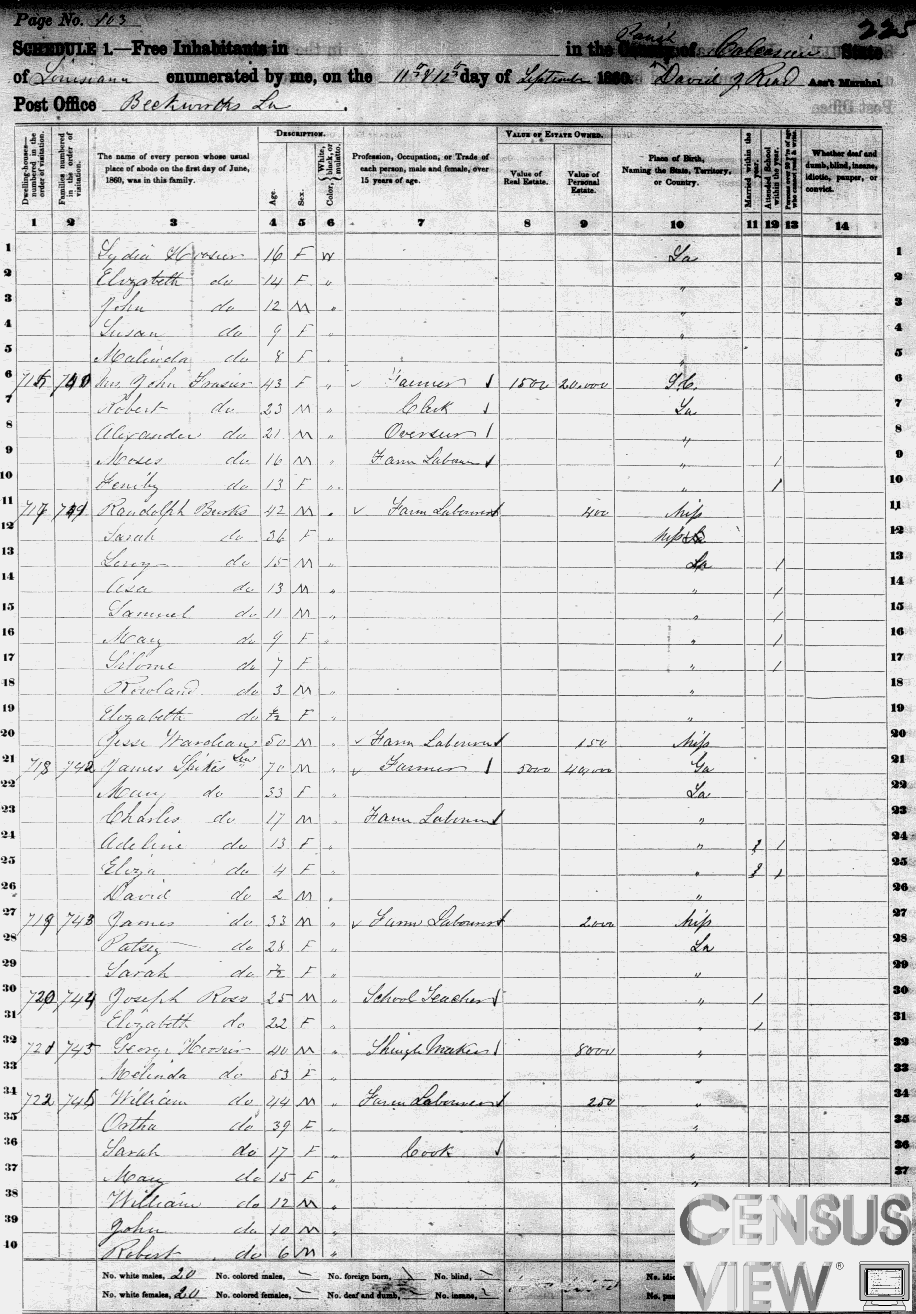 Page No. 103
225
SCHEDULE 1.—Free Inhabitants in in the County of Parish Calcasieu State
of Louisiana enumerated by me, on the 11th & 12th day of September 1860. David J Read Ass't Marshal.
Post Office Beckworths La
Dwelling-houses—numbered in the order of visitation.
Families numbered in the order of visitation.
The name of every person whose usual place of abode on the first day of June, 1860, was in this family.
DESCRIPTION.
Age.
Sex.
Color, White, black, or mulatto.
Profession, Occupation, or Trade of each person, male and female, over 15 years of age.
VALUE OF ESTATE OWNED.
Value of Real Estate.
Value of Personal Estate.
Place of Birth, Naming the State, Territory, or Country.
Married within the year.
Attended School within the year.
Persons over 20 y'rs of age who cannot read & write.
Whether deaf and dumb, blind, insane, idiotic, pauper, or convict.
1 2 3 4 5 6 7 8 9 10 11 12 13 14
1 Lydia Hoosier 16 F W La 1
2 Elizabeth do 14 F " " 2
3 John do 12 M " " 3
4 Susan do 9 F " " 4
5 Malinda do 8 F " " 5
6 740 Mrs John Frasier 43 F " Farmer 1500 20,000 S.C. 6
7 Robert do 23 M " Clerk La 7
8 Alexander do 21 M " Overseer " 8
9 Moses do 16 M " Farm Labourer " / 9
10 do 13 F " " / 10
11 717 741 Randolph Burks 42 M " Farm Labourer 400 Miss 11
12 Sarah do 36 F " Miss 12
13 Leroy do 15 M " La / 13
14 Asa do 13 M " " / 14
15 Samuel do 11 M " " / 15
16 Mary do 9 F " " / 16
17 Silome do 7 F " " / 17
18 Rowland do 3 M " " 18
19 Elizabeth do F " " 19
20 Jesse 50 M " Farm Labourer 150 Miss 20
21 718 742 James Spikes Sen 70 M " Farmer 5000 Ga 21
22 Mary do 33 F " La 22
23 Charles do 17 M " Farm Labourer " 23
24 Adeline do 13 F " " / 24
25 Eliza do 4 F " " 25
26 David do 2 M " " 26
27 719 743 James do 33 M " Farm Labourer 2000 Miss 27
28 Patsey do 28 F " La 28
29 Sarah do F " " 29
30 720 744 Joseph Ross 25 M " School Teacher " / 30
31 Elizabeth do 22 F " " / 31
32 721 745 George Hoosier 40 M " Shingle Maker 8000 " 32
33 Melinda do 53 F " " 33
34 722 746 William do 44 M " Farm Labourer 250 " 34
35 Ortha do 39 F " " 35
36 Sarah do 17 F " Cook " 36
37 Mary do 15 F " 37
38 William do 12 M "
39 John do 10 M "
40 Robert do 6 M "
No. white males, 20 No. colored males, No. foreign born, No. blind, No. idio
No. white females, 20 No. colored females, No. deaf and dumb, No. insane, No. pa
CENSUS
VIEW®